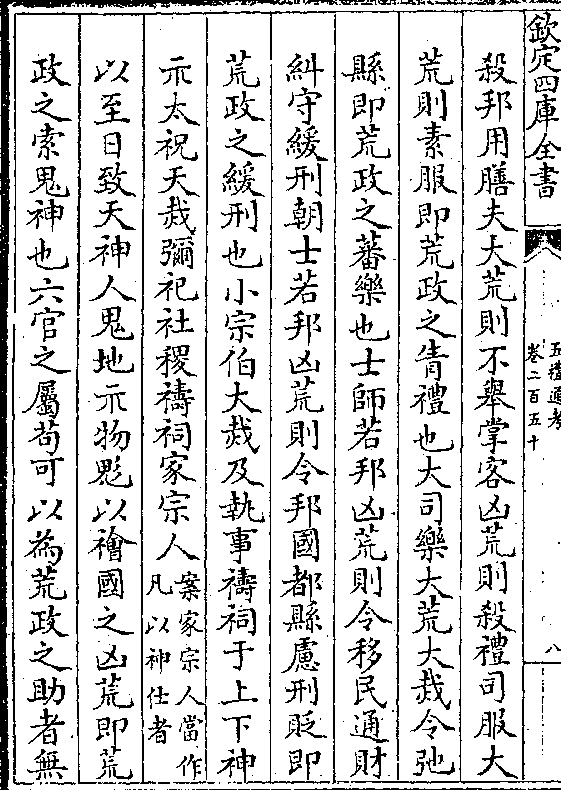 欽定四庫全書
五禮通考
卷二百五十
八
殺邦用膳夫大荒則不舉掌客凶荒則殺禮司服大
荒則素服即荒政之眚禮也大司樂大荒大烖令弛
縣即荒政之蕃樂也士師若邦凶荒則令移民通財
糾守緩刑朝士若邦凶荒則令邦國都縣慮刑貶即
荒政之緩刑也小宗伯大烖及執事禱祠于上下神
示太祝天烖彌祀社稷禱祠家宗人案家宗人當作凡以神仕者
以至日致天神人鬼地示物鬽以禬國之凶荒即荒
政之索鬼神也六官之屬苟可以為荒政之助者無